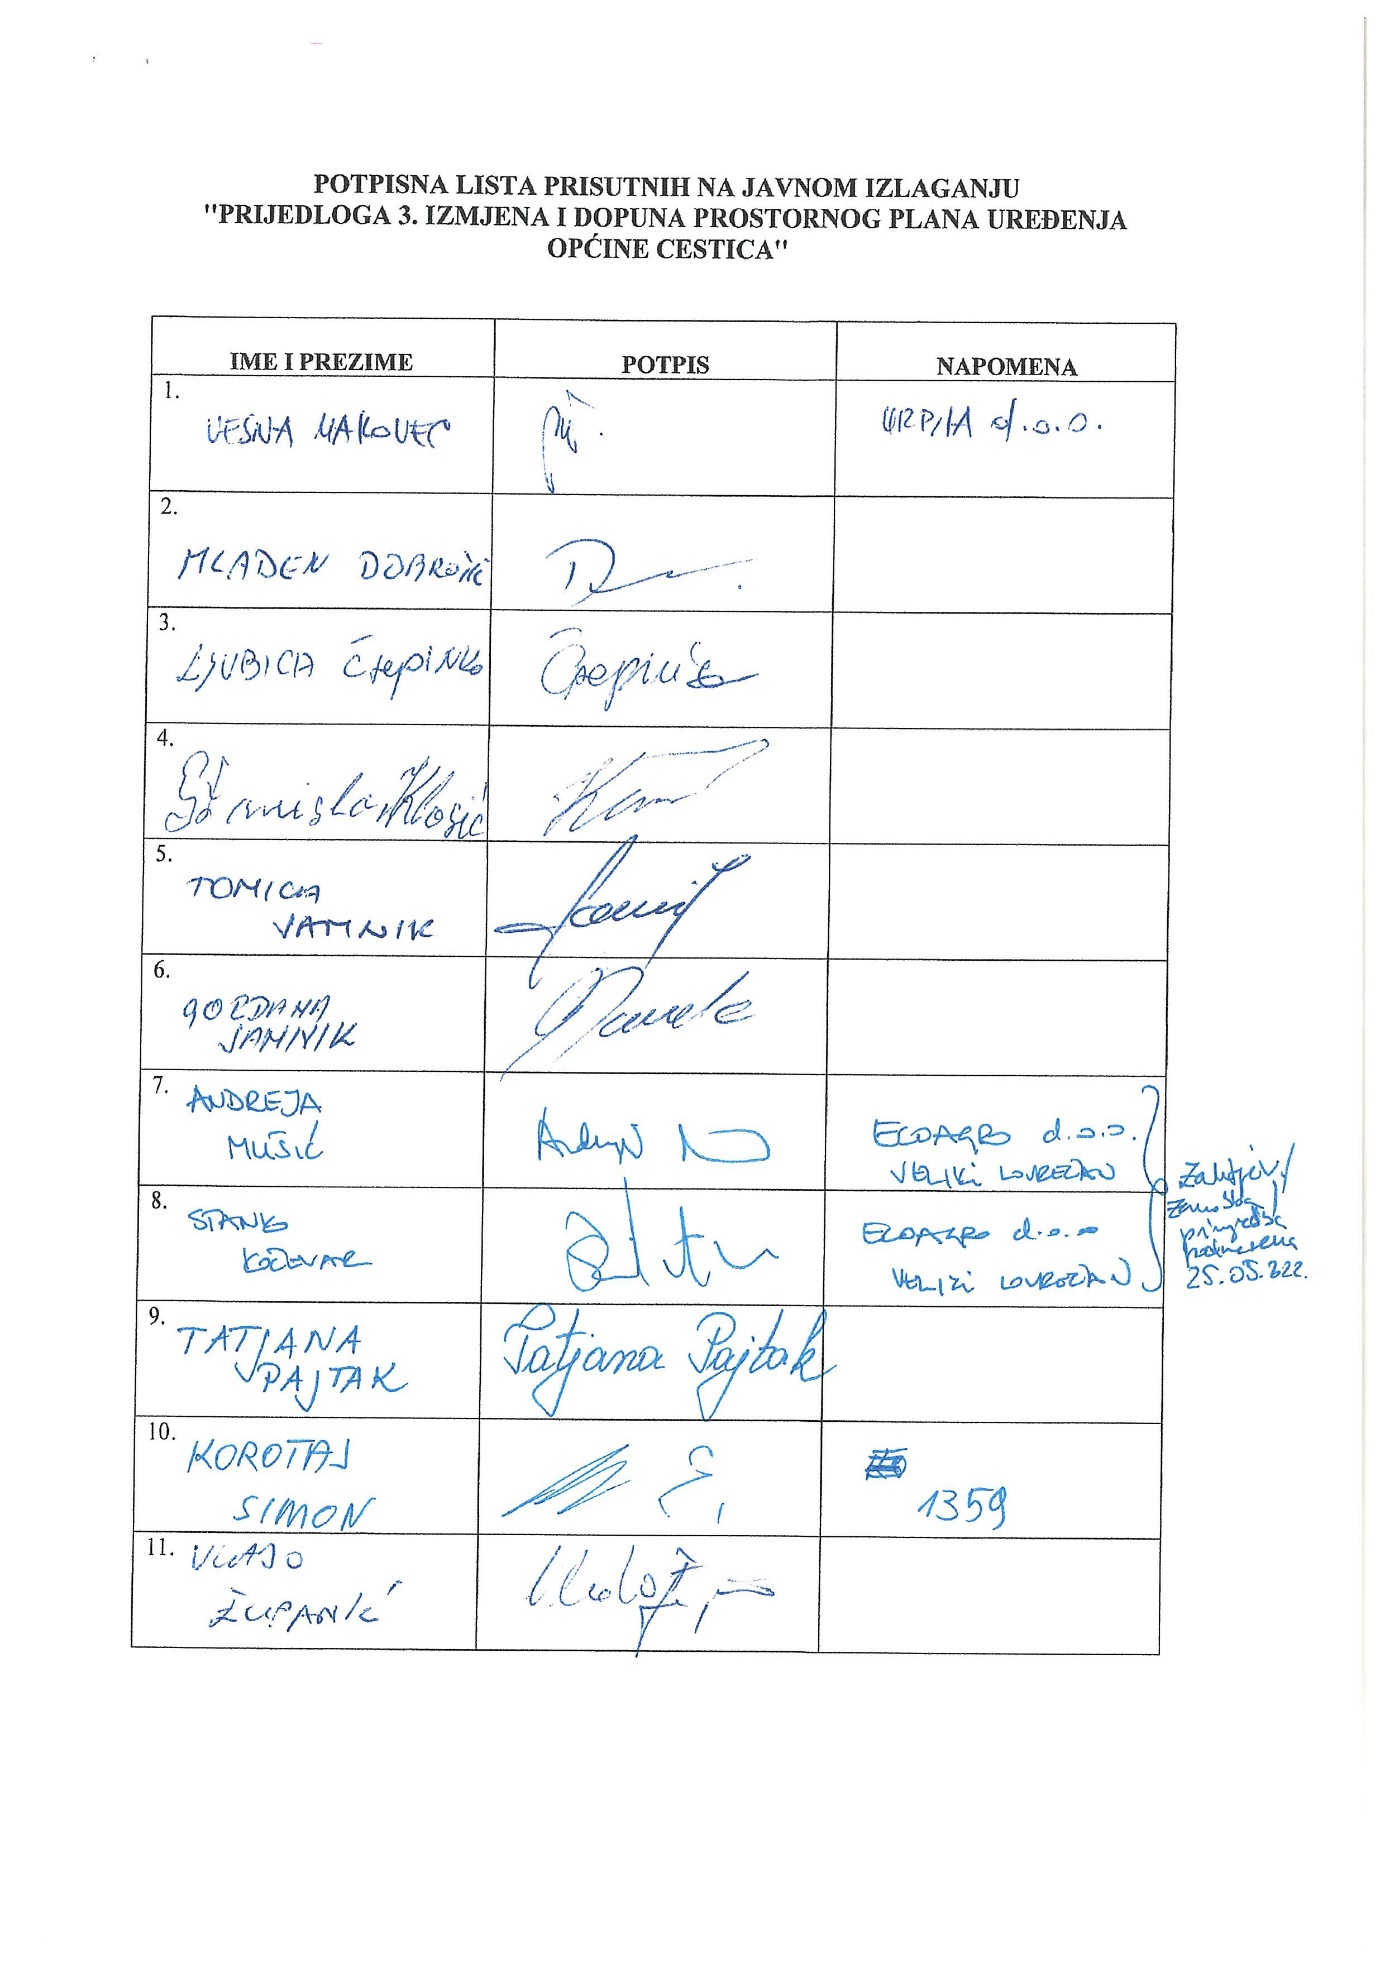 POTPISNA LISTA PRISUTNIH NA JAVNOM IZLAGANJU
"PRIJEDLOGA 3. IZMJENA I DOPUNA PROSTORNOG PLANA UREĐENJA
OPĆINE CESTICA"
IME I PREZIME POTPIS NAPOMENA
1.
VESNA MAKOVEC URPIA d.o.o.
2.
MLADEN
3.
LJUBICA Črepinko Črepinko
4.
Klosić
5.
TOMICA
JAMNIK
6.
GORDANA
JAMNIK
7.
ANDREJA
MUŠIĆ
ECOAGRO d.o.o.
VELIKI LOVREČAN
8.
STANKO
KOČEVAR
ECOAGRO d.o.o
VELIKI LOVREČAN
Zahtjev/
25.05.222.
9.
TATJANA
PAJTAK
Tatjana Pajtak
10.
KOROTAJ
SIMON
1359
11.
VLADO
ŽUPANIĆ